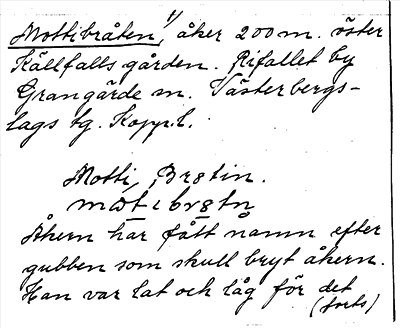 Mottibråten, 1/ åker 200 m. öster
Källfallsgården. Rifallet by
Grangärde sn. Västerbergs-
lags tg. Kopp. l.
Motti, Br8tin.
Åkern har fått namn efter
gubben som skull bryt åkern.
Han var lat och låg för det
(forts)